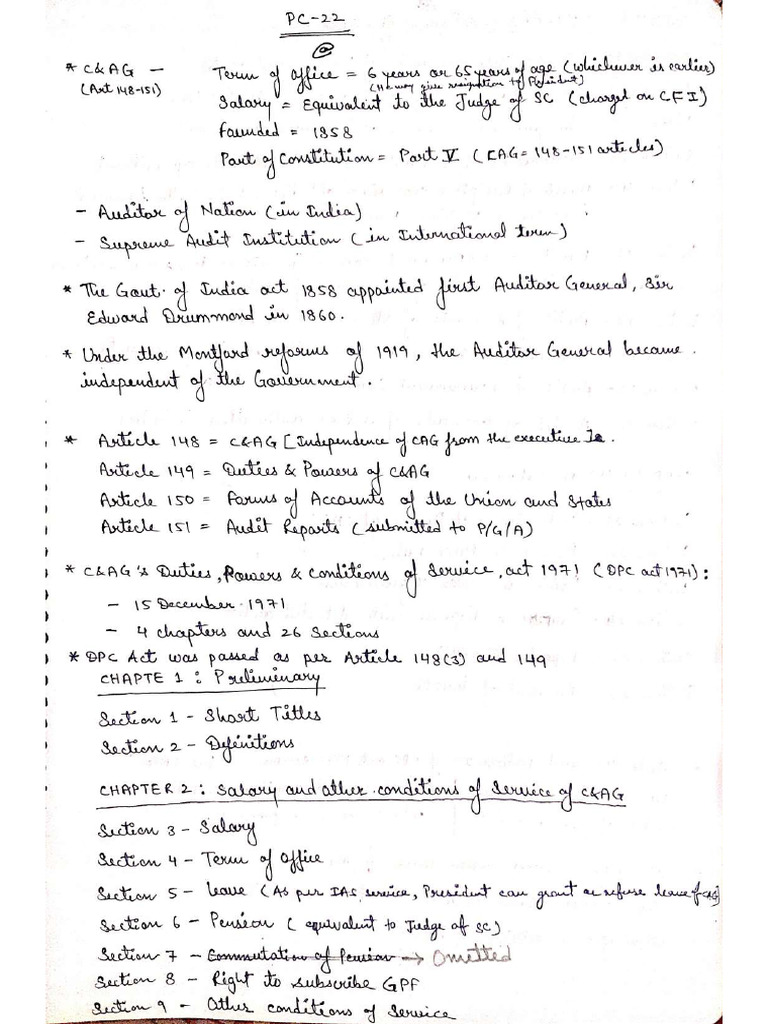 PC-22
* C&AG - Term of office = 6 years or 65 years of age (whichever is earlier)
(Art 148-151) (He may give resignation to President)
Salary = Equivalent to the Judge of SC (charged on CFI)
Founded = 1858
Part of Constitution = Part V (CAG = 148-151 articles)
- Auditor of Nation (in India)
- Supreme Audit Institution (in International term)
* The Govt. of India act 1858 appointed first Auditor General, Sir
Edward Drummond in 1860.
* Under the Montford reforms of 1919, the Auditor General became
independent of the Government.
* Article 148 = C&AG [Independence of CAG from the executive].
Article 149 = Duties & Powers of C&AG
Article 150 = Forms of Accounts of the Union and States
Article 151 = Audit Reports (submitted to P/G/A)
* C&AG's Duties, Powers & Conditions of Service, act 1971 (DPC act 1971):
- 15 December 1971
- 4 chapters and 26 Sections
* DPC Act was passed as per Article 148(3) and 149
CHAPTE 1 : Preliminary
Section 1 - Short Titles
Section 2 - Definitions
CHAPTER 2 : Salary and other conditions of Service of C&AG
Section 3 - Salary
Section 4 - Term of Office
Section 5 - Leave (As per IAS service, President can grant or refuse leave of CAG)
Section 6 - Pension (equivalent to Judge of SC)
Section 7 - Commutation of Pension → Omitted
Section 8 - Right to subscribe GPF
Section 9 - Other conditions of Service